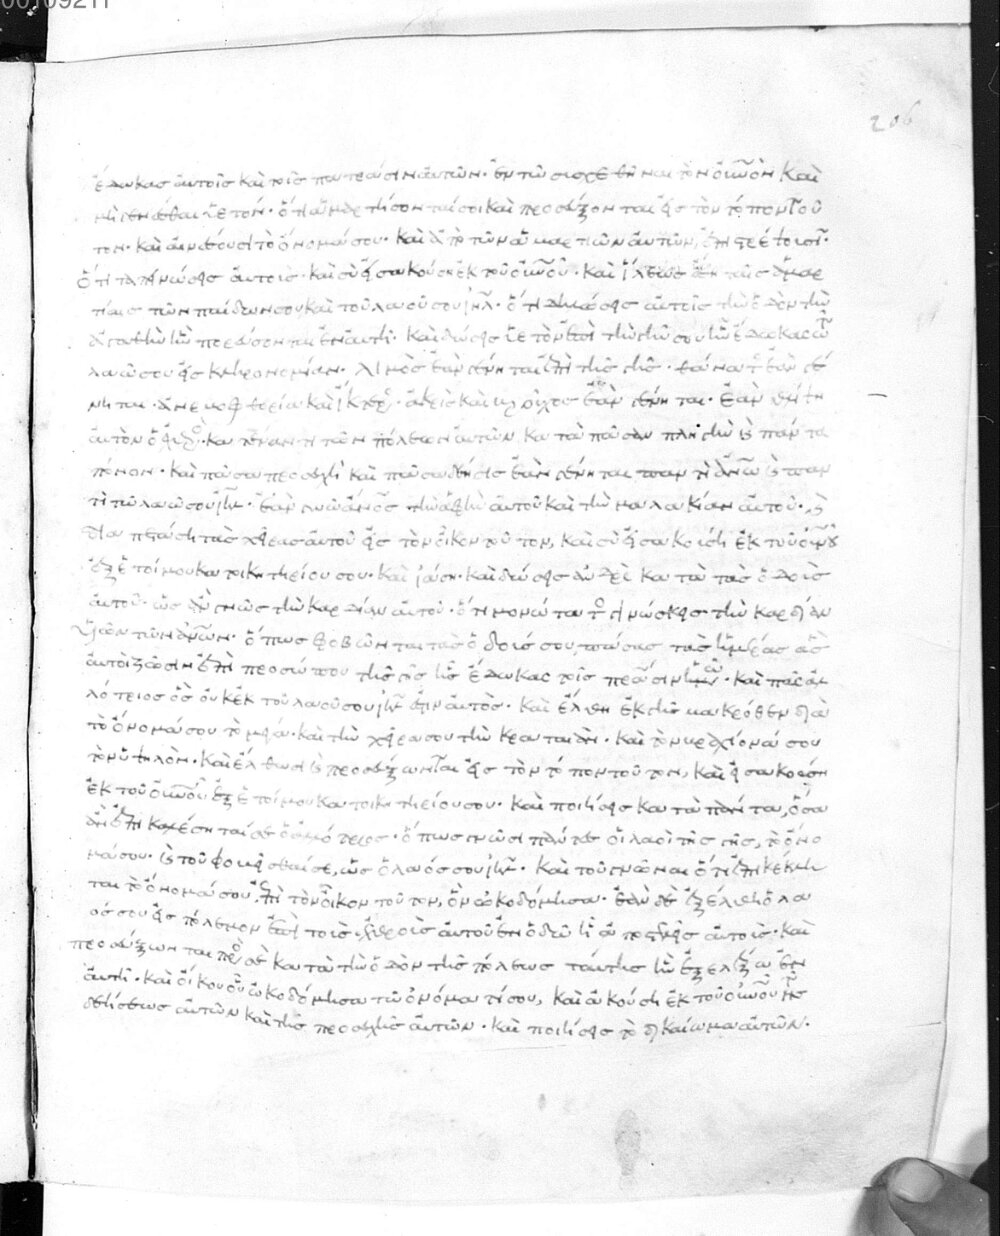 00109211
206
ἔδωκας αὐτοῖς καὶ τοῖς πατράσιν αὐτῶν. ἐν τῶ συσχεθῆναι τὸν οὐνὸν καὶ
μὴ γενέσθαι ὑετόν. ὅτι ἁμαρτήσονταί σοι καὶ προσεύξονται εἰς τὸν τόπον τοῦ
τον. καὶ αἰνέσουσι τὸ ὄνομά σου. καὶ ἀπὸ τῶν ἁμαρτιῶν αὐτῶν ἐπιστρέψουσι.
ὅτι ταπεινώσεις αὐτούς. καὶ σὺ εἰσακούση ἐκ τοῦ οὐνοῦ. καὶ ἵλεως ἔση ταῖς ἁμαρ
τίαις τῶν παίδων σου καὶ τοῦ λαοῦ σου ιηλ. ὅτι δηλώσεις αὐτοῖς τὴν ὁδὸν τὴν
ἀγαθὴν ἣν πορεύσονται ἐν αὐτῆ. καὶ δώσεις ὑετὸν ἐπὶ τὴν γῆν σου ἣν ἔδωκας τῶ
λαῶ σου εἰς κληρονομίαν. λιμὸς ἐὰν γένηται ἐπὶ τῆς γῆς. θάνατος ἐὰν γέ
νηται. ἀνεμοφθορία καὶ ἴκτερος. ἀκρὶς καὶ βροῦχος ἐὰν γένηται. ἐὰν θλίψη
αὐτὸν ὁ ἐχθρὸς κατέναντι τῶν πόλεων αὐτῶν κατὰ πᾶσαν πληγὴν καὶ πάντα
πόνον. καὶ πᾶσα προσευχὴ καὶ πᾶσα δέησις ἐὰν γένηται παντὶ ἀνῶ καὶ παν
τὶ τῶ λαῶ σου ιηλ. ἐὰν γνῶ ἄνος τὴν ἁφὴν αὐτοῦ καὶ τὴν μαλακίαν αὐτοῦ. καὶ
διαπετάση τὰς χεῖρας αὐτοῦ εἰς τὸν οἶκον τοῦτον, καὶ σὺ εἰσακούση ἐκ τοῦ οὐνοῦ
ἐξ ἑτοίμου κατοικητηρίου σου. καὶ ἰάση. καὶ δώσεις ἀνδρὶ κατὰ τὰς ὁδοὺς
αὐτοῦ. ὡς ἂν γνῶς τὴν καρδίαν αὐτοῦ. ὅτι μονώτατος γινώσκεις τὴν καρδίαν
υἱῶν τῶν ἀνων. ὅπως φοβῶνται τὰς ὁδούς σου, πάσας τὰς ἡμέρας ἃς
αὐτοὶ ζῶσιν ἐπὶ προσώπου τῆς γῆς ἧς ἔδωκας τοῖς πράσιν ἡμῶν. καὶ πᾶς ἀλ
λότριος ὃς οὐκ ἐκ τοῦ λαοῦ σου ιηλ ἐστὶν αὐτός. καὶ ἔλθη ἐκ γῆς μακρόθεν διὰ
τὸ ὄνομά σου τὸ μέγα. καὶ τὴν χεῖρά σου τὴν κραταιὰν. καὶ τὸν βραχίονά σου
τὸν ὑψηλόν. καὶ ἔλθωσι καὶ προσεύξωνται εἰς τὸν τόπον τοῦτον, καὶ εἰσακούση
ἐκ τοῦ οὐνοῦ ἐξ ἑτοίμου κατοικητηρίου σου. καὶ ποιήσεις κατὰ πάντα, ὅσα
ἂν ἐπικαλέσηταί σε ὁ ἀλλότριος. ὅπως γνῶσι πάντες οἱ λαοὶ τῆς γῆς, τὸ ὄνο
μά σου. καὶ τοῦ φοβεῖσθαί σε, ὡς ὁ λαός σου ιηλ. καὶ τοῦ γνῶναι ὅτι ἐπικέκλη
ται τὸ ὄνομά σου ἐπὶ τὸν οἶκον τοῦτον, ὃν ὠκοδόμησα. ἐὰν δὲ ἐξέλθη ὁ λα
ός σου εἰς πόλεμον ἐπὶ τοὺς ἐχθροὺς αὐτοῦ ἐν ὁδῶ ἧ ἀποστελεῖς αὐτούς. καὶ
προσεύξωνται πρός σε κατὰ τὴν ὁδὸν τῆς πόλεως ταύτης ἣν ἐξελέξω ἐν
αὐτῆ. καὶ οἴκου οὗ ὠκοδόμησα τῶ ὀνόματί σου, καὶ ἀκούση ἐκ τοῦ οὐνοῦ τῆς
δεήσεως αὐτῶν καὶ τῆς προσευχῆς αὐτῶν. καὶ ποιήσεις τὸ δικαίωμα αὐτῶν.